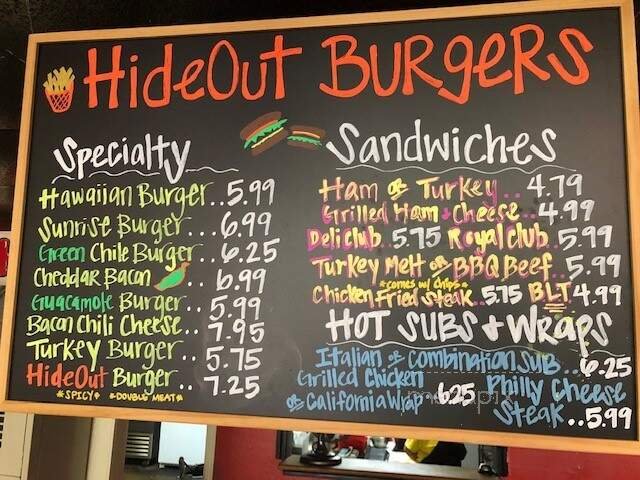 HideOut BURgeRS
Specialty
Hawaiian Burger..5.99
Sunrise Burger...6.99
Green Chile Burger..6.25
Cheddar Bacon .. 6.99
Guacamole Burger..5.99
Bacon Chili Cheese..7.95
Turkey Burger..5.75
HideOut Burger..7.25
*SPICY* *DOUBLE MEAT*
Sandwiches
Ham or Turkey..4.79
Grilled Ham + Cheese..4.99
Deli Club 5.75 Royal Club 5.99
Turkey Melt or BBQ Beef..5.99
*comes w/ chips*
Chicken Fried Steak..5.75 BLT 4.99
HOT SUBS + WRapS
Italian or Combination Sub..6.25
Grilled Chicken
or California Wrap 6.25
Philly Cheese
Steak..5.99